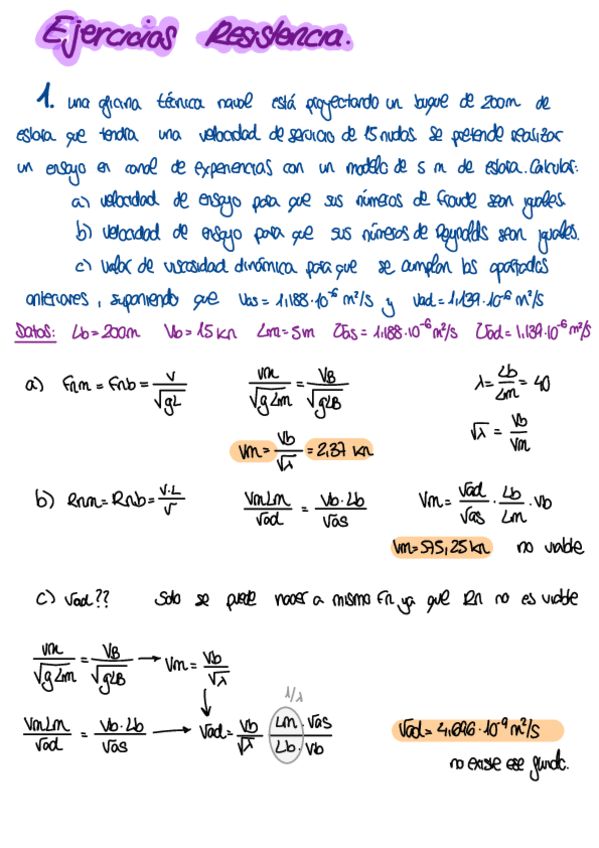 Ejercicios Resistencia.
1. una oficina técnica naval está proyectando un buque de 200m de
eslora que tendra una velocidad de servicio de 15 nudos. se pretende realizar
un ensayo en canal de experiencias con un modelo de 5 m de eslora. Calcular:
a) velocidad de ensayo para que sus números de Froude sean iguales.
b) velocidad de ensayo para que sus números de Reynolds sean iguales.
c) valor de viscosidad dinámica para que se cumplan los apartados
anteriores, suponiendo que νas = 1,188·10⁻⁶ m²/s y νad = 1,139·10⁻⁶ m²/s
Datos: Lb = 200m Vb = 15 kn Lm = 5m νas = 1,188·10⁻⁶ m²/s νad = 1,139·10⁻⁶ m²/s
a) Fnm = Fnb = V/√gL Vm/√gLm = VB/√gLB λ = Lb/Lm = 40
Vm = Vb/√λ = 2,37 kn √λ = Vb/Vm
b) Rnm = Rnb = V·L/ν VmLm/νad = Vb·Lb/νas Vm = νad/νas · Lb/Lm · Vb
Vm = 575,25 kn no viable
c) νad?? Solo se puede hacer a mismo Fn ya que Rn no es viable
Vm/√gLm = VB/√gLB → Vm = Vb/√λ
1/λ
VmLm/νad = Vb·Lb/νas → νad = Vb/√λ Lm·νas/Lb·Vb νad = 4,696·10⁻⁹ m²/s
no existe ese fluido.